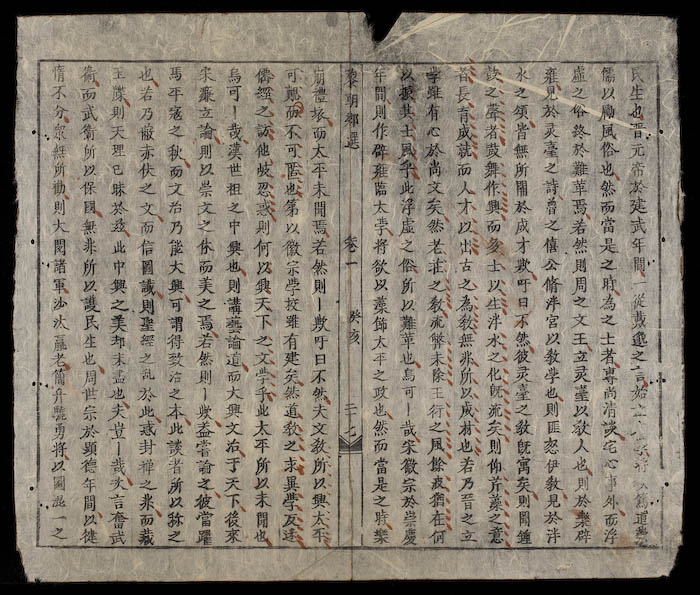 民生也晋元帝於建武年間一從戴邈之言始立以篤道藝
儒以勵風俗也然而當是之時為之士者專尚清談宅心事外而浮
虛之俗終於難革焉若然則周之文王立灵臺以教人也則於樂辟
雍見於灵臺之詩魯之僖公脩泮宮以教學也則匪怒伊教見於泮
水之頌皆無所關於成才歟吁曰不然彼灵臺之教既寓矣則闐鍾
鼓之聲者鼓舞作興而多士以生泮水之化既流矣則作芹藻之意
者長育成就而人才以出古之為教無非所以成材也若乃晋之立
學雖有心於尚文矣然老莊之教流弊未除王衍之風餘波猶在何
以振其士風乎此浮虛之俗所以難革也烏可丨哉宋徽宗於崇慶
年間則作辟雍臨太學將欲以藻飾太平之政也然而當是之時樂
黎朝鄉選 卷一 癸亥 三十七
廟禮壞而太平未聞焉若然則丨歟吁曰不然夫文教所以興太平
可而不可也第以徽宗學校雖有建矣然道教之求異學友迷
儒經之訪他岐忍惑則何以興天下之文學乎此太平所以未聞也
烏可丨哉漢世祖之中興也則講藝論道而大興文治于天下後來
宋濂立論則以崇文之休而美之焉若然則丨歟盖嘗論之彼當躍
馬平寇之秋而文治乃能大興可謂得致治之本此談者所以称之
也若乃徹亦伏之文而信圖讖則聖經之乱於此惑封禅之非而藏
玉牒則天理已昧於茲此中興之美却未盡也夫豈丨哉夫言奮武
衛而武衛所以保國無非所以護民生也周世宗於顯德年間以徤
惰不分衆無所勸則大閱諸軍沙汰羸老簡升驍勇將以圖混一之